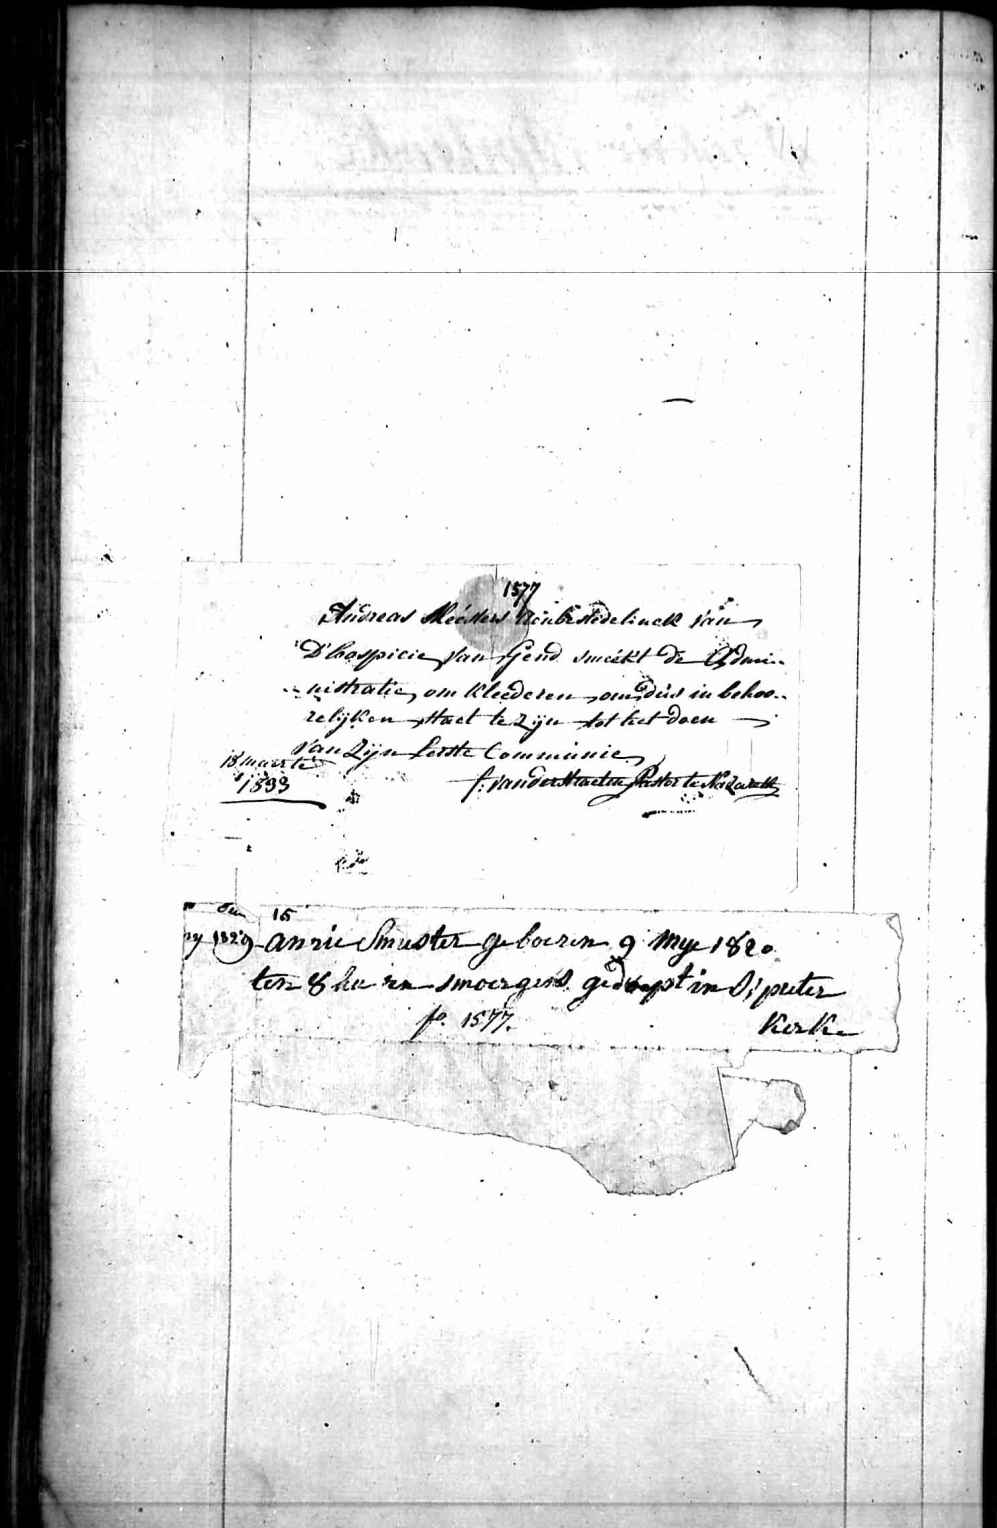 1577
Andreas Meesters bestedelinck van
D'hospicie van Gend smeekt de Admi-
nistratie, om kleederen, om dus in behoo-
relijken staet te zijn tot het doen
van zijn Eerste Communie,
18 maerte
1833
f: vanderstraeten Pastor te Nazareth
den 15
ry 1829 annie Smuster geboeren 9 Mye 1820
ten 8 hu ren smoergens gedoept in S; peeter
Kerke
fo. 1577.